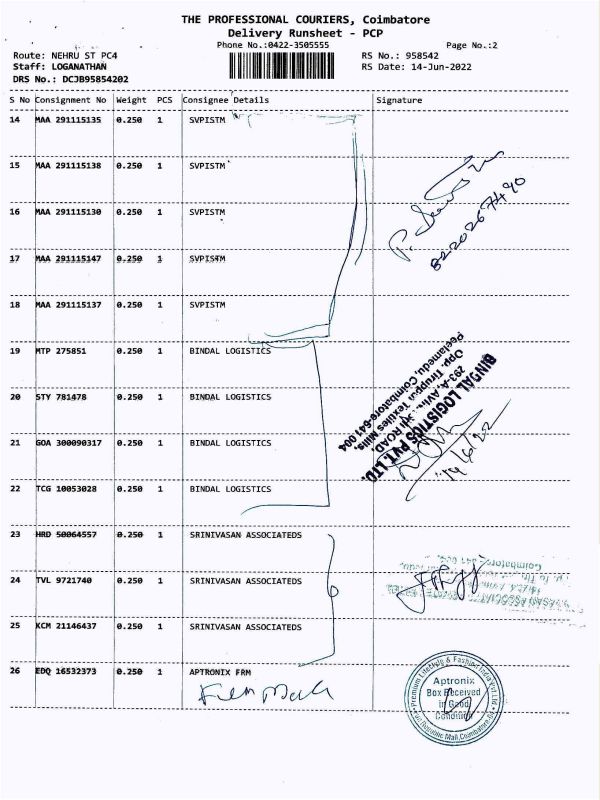 THE PROFESSIONAL COURIERS, Coimbatore
Delivery Runsheet - PCP
Phone No.:0422-3505555 Page No.:2
Route: NEHRU ST PC4 RS No.: 958542
Staff: LOGANATHAN RS Date: 14-Jun-2022
DRS No.: DCJB95854202
S No Consignment No Weight PCS Consignee Details Signature
14 MAA 291115135 0.250 1 SVPISTM
15 MAA 291115138 0.250 1 SVPISTM
16 MAA 291115130 0.250 1 SVPISTM
8220267490
17 MAA 291115147 0.250 1 SVPISTM
18 MAA 291115137 0.250 1 SVPISTM
19 MTP 275851 0.250 1 BINDAL LOGISTICS
20 STY 781478 0.250 1 BINDAL LOGISTICS
BINDAL LOGISTICS PVT. LTD.
293-A, ROAD,
Opp. Tiruppur Textiles Mills,
Peelamedu, Coimbatore-641 004
14/6/22
21 GOA 300090317 0.250 1 BINDAL LOGISTICS
22 TCG 10053028 0.250 1 BINDAL LOGISTICS
23 HRD 50064557 0.250 1 SRINIVASAN ASSOCIATEDS
Coimbatore
24 TVL 9721740 0.250 1 SRINIVASAN ASSOCIATEDS
25 KCM 21146437 0.250 1 SRINIVASAN ASSOCIATEDS
26 EDQ 16532373 0.250 1 APTRONIX FRM
Premium Lifestyle & Fashion India Pvt Ltd
Aptronix
Box Received
in Good
Condition
Republic Mall, Coimbatore